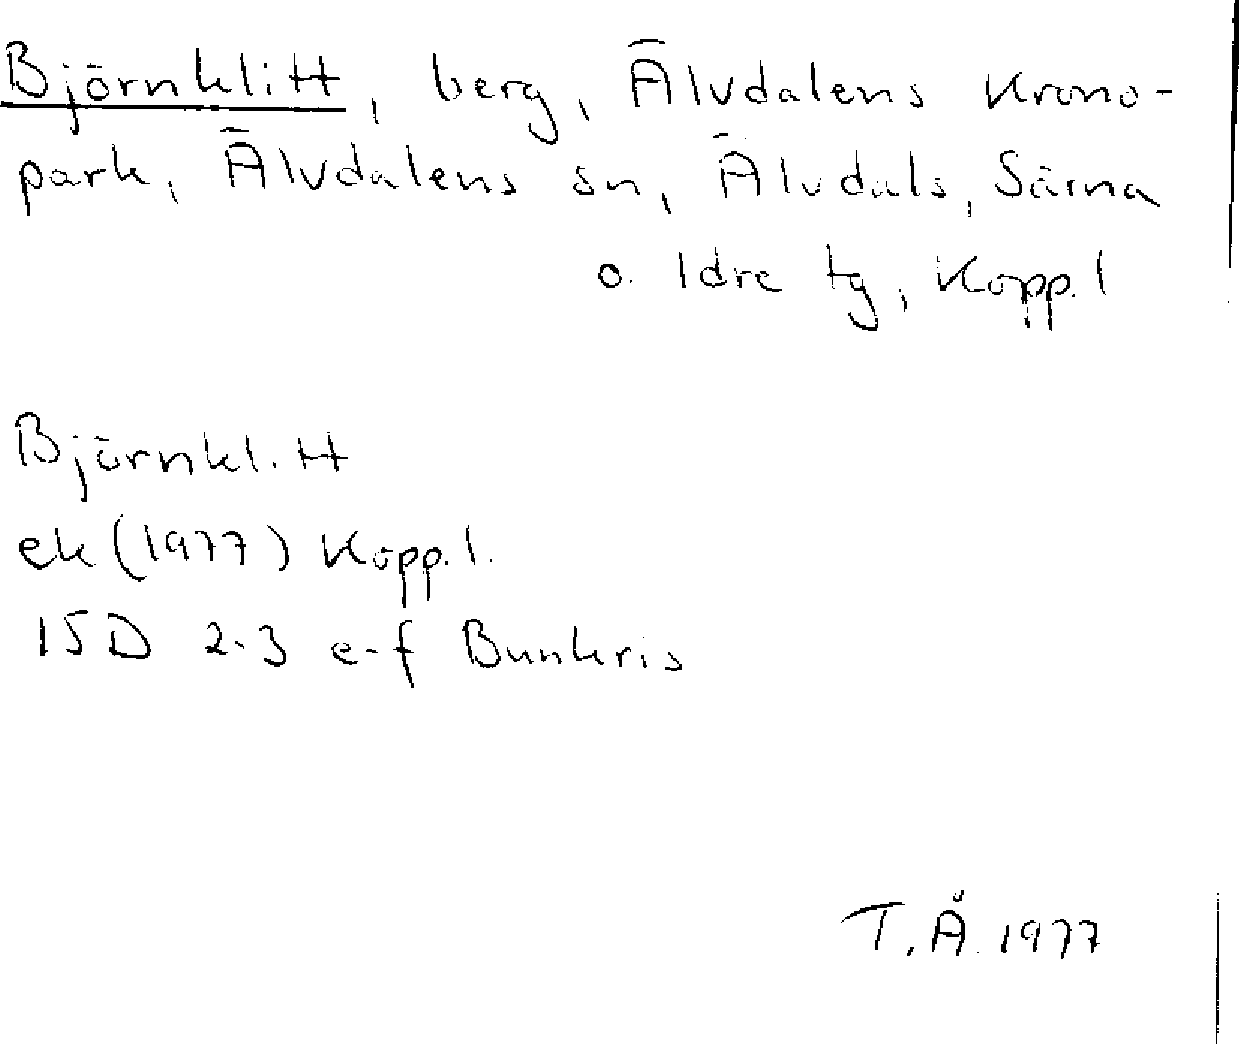 Björnklitt, berg, Älvdalens Krono-
park, Älvdalens sn, Älvdals, Särna
o. Idre tg, Kopp. l
Björnklitt
ek (1977) Kopp. l.
15D 2-3 e-f Bunkris
T. Å. 1977